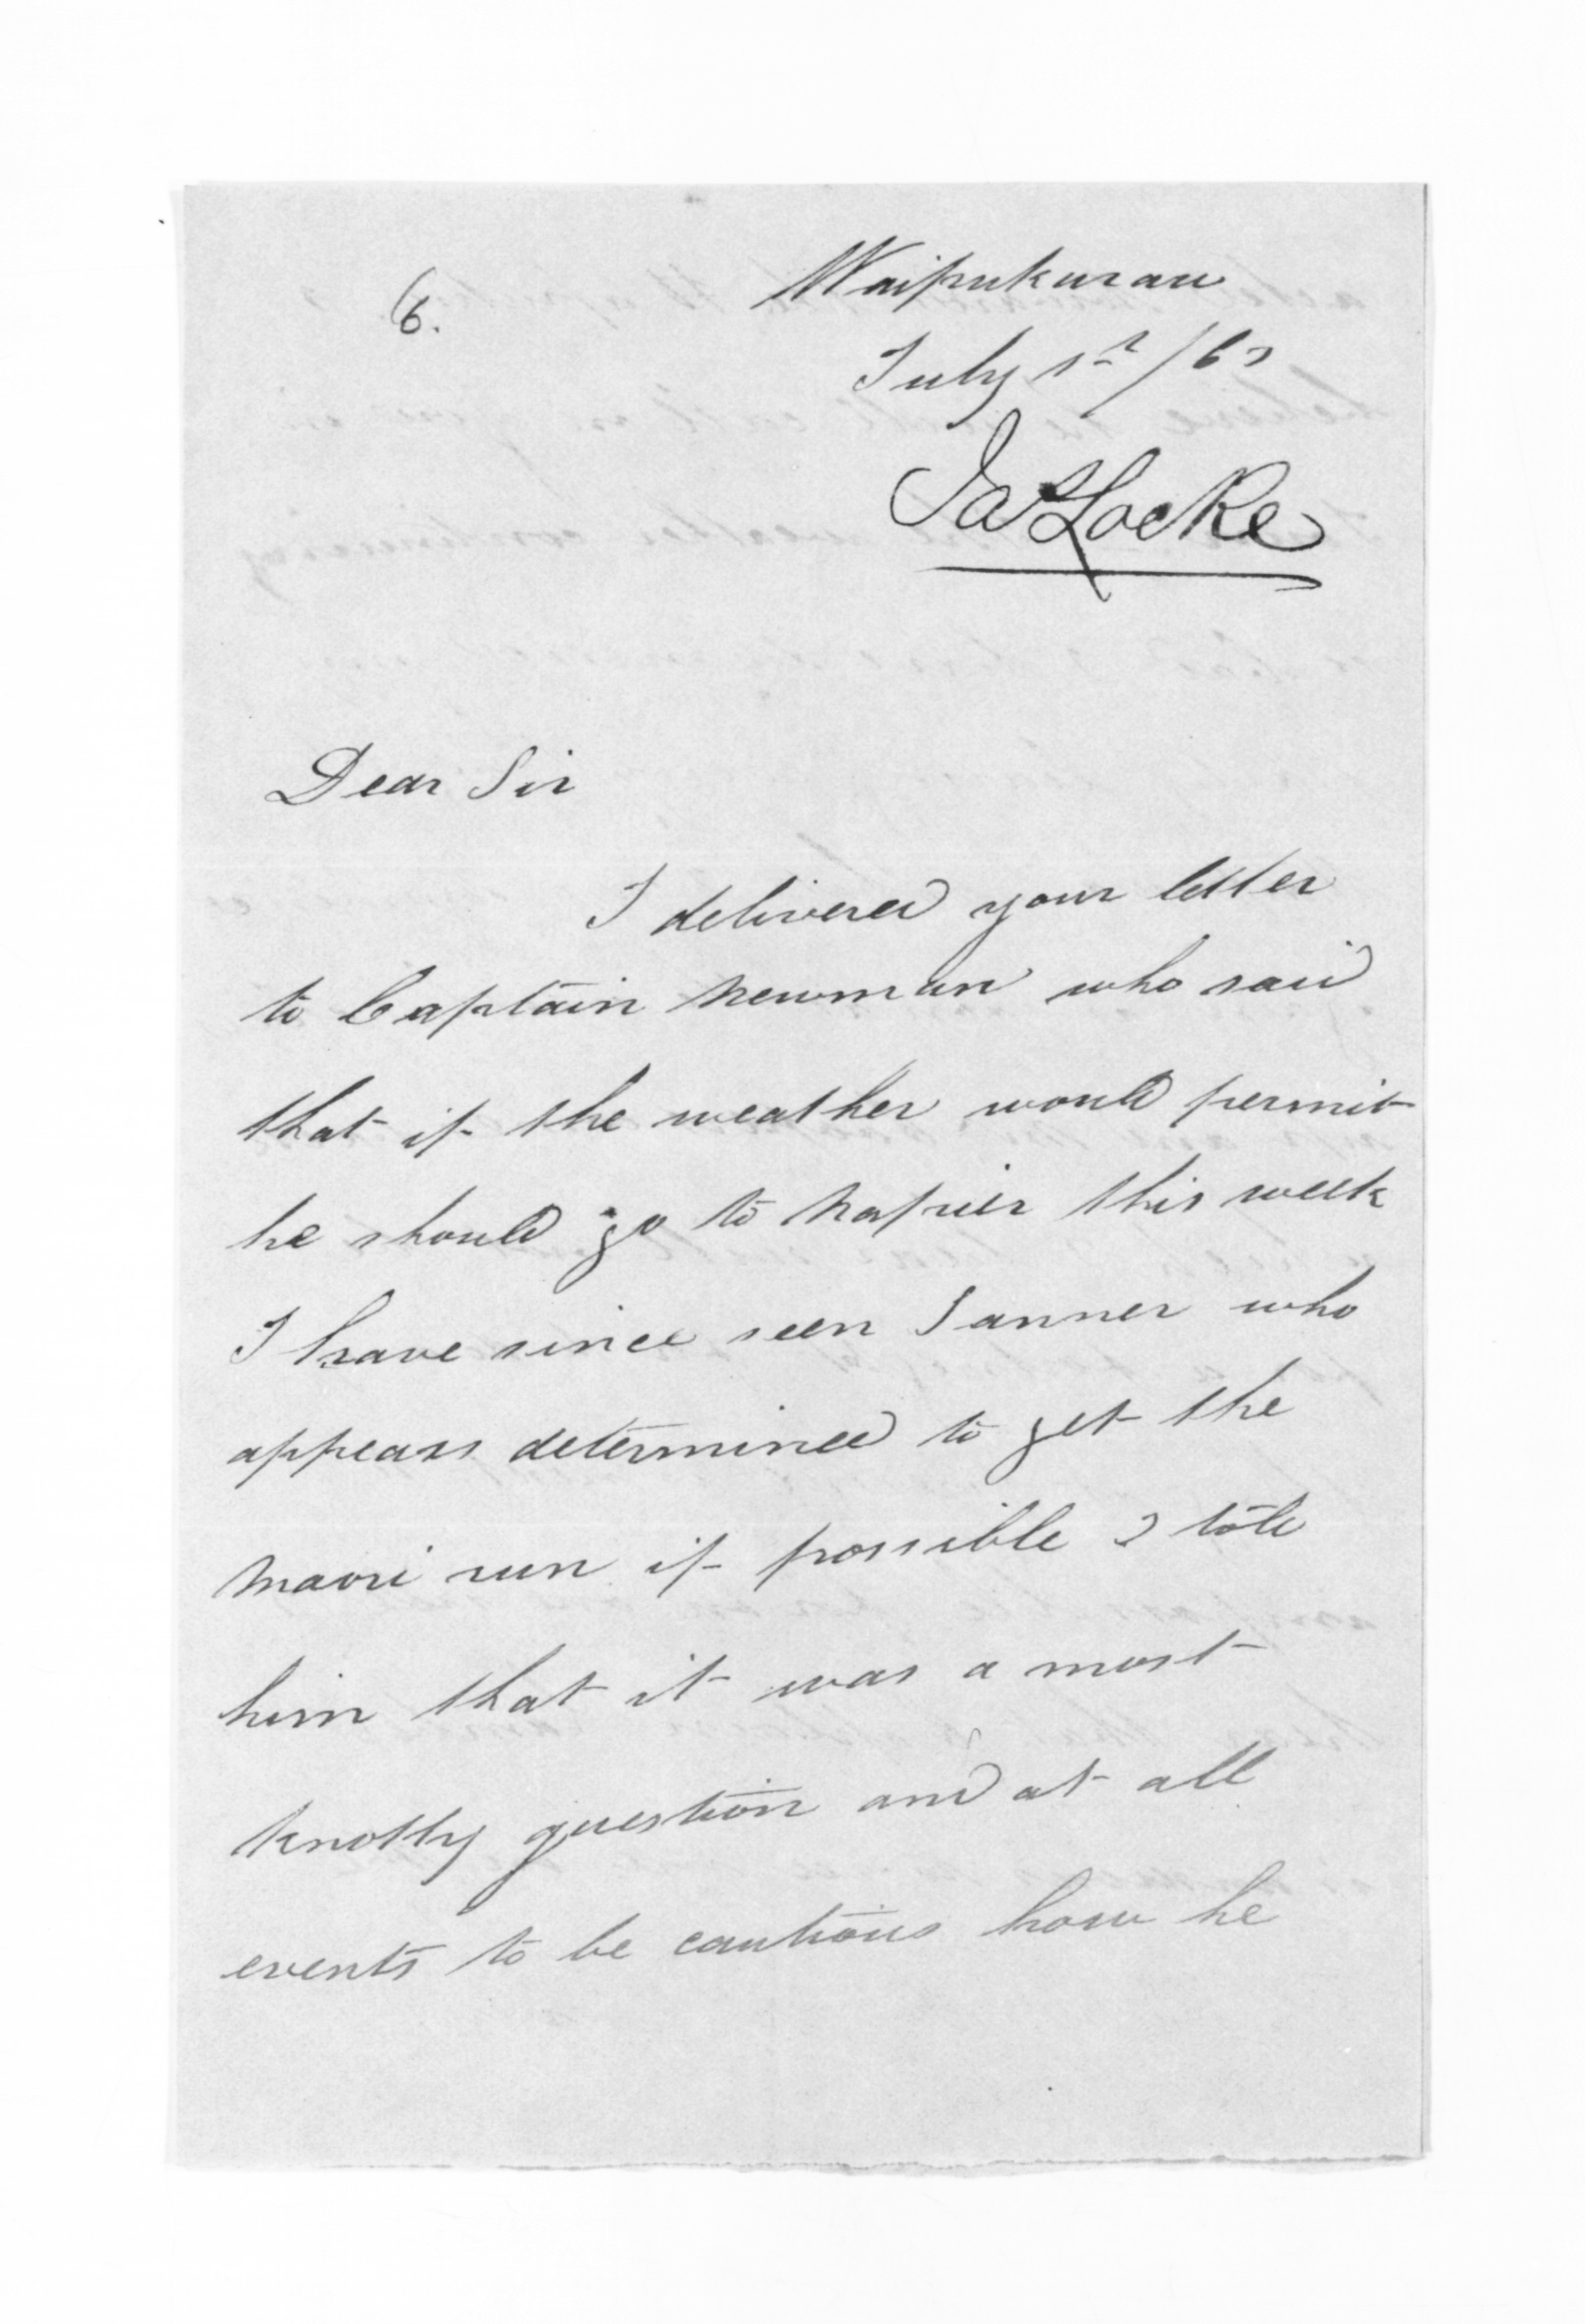 6.
Waipukurau
July 1st /63
Locke
Dear Sir
I delivered your letter
to Captain Newman who said
that if the weather would permit
he should go to Napier this week
I have since seen Tanner who
appears determined to get the
Maori run if possible I told
him that it was a most
knotty question and at all
events to be cautious how he